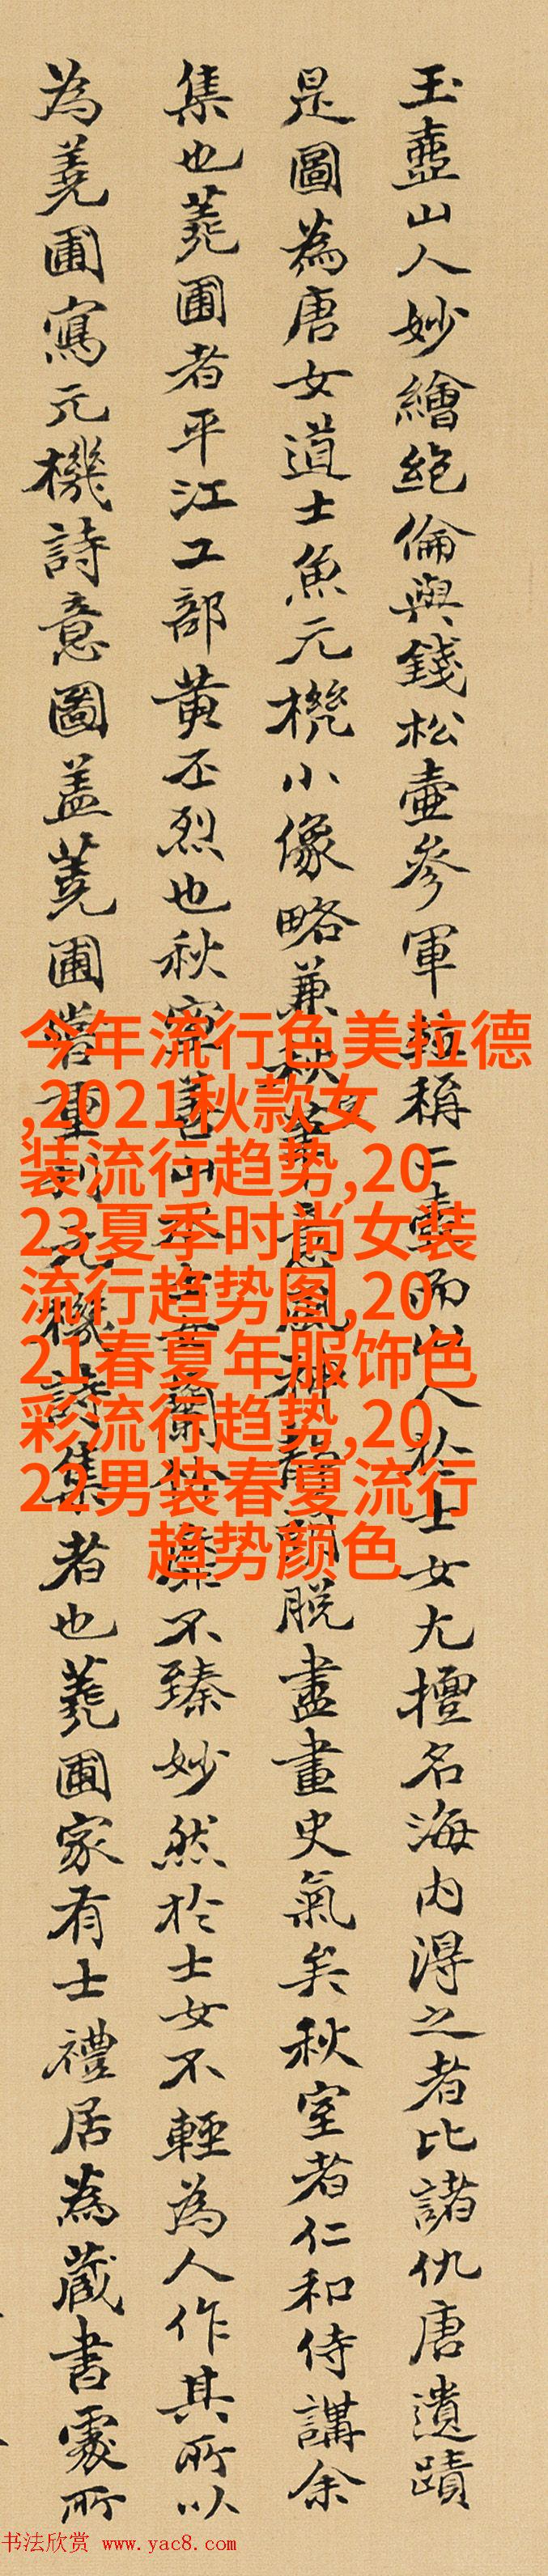 玉壺山人妙繪絶倫與錢松壷參軍竝稱二壺而山人於士女尤擅名海内淂之者比諸仇唐遺蹟
是圖為唐女道士魚元機小像略兼秋室意風神静朗脱盡畫史氣矣秋室者仁和侍講余
集也蕘圃者平江工部黄丕烈也秋室善山水蘭竹靡不臻妙然於士女不輕為人作其所以
為蕘圃寫元機詩意圖盖蕘圃嘗重刊元機詩集者也蕘圃家有士禮居為藏書處所
今年流行色美拉德
,2021秋款女
装流行趋势,20
23夏季时尚女装
流行趋势图,20
21春夏年服饰色
彩流行趋势,20
22男装春夏流行
趋势颜色
书法欣赏 www.yac8.com